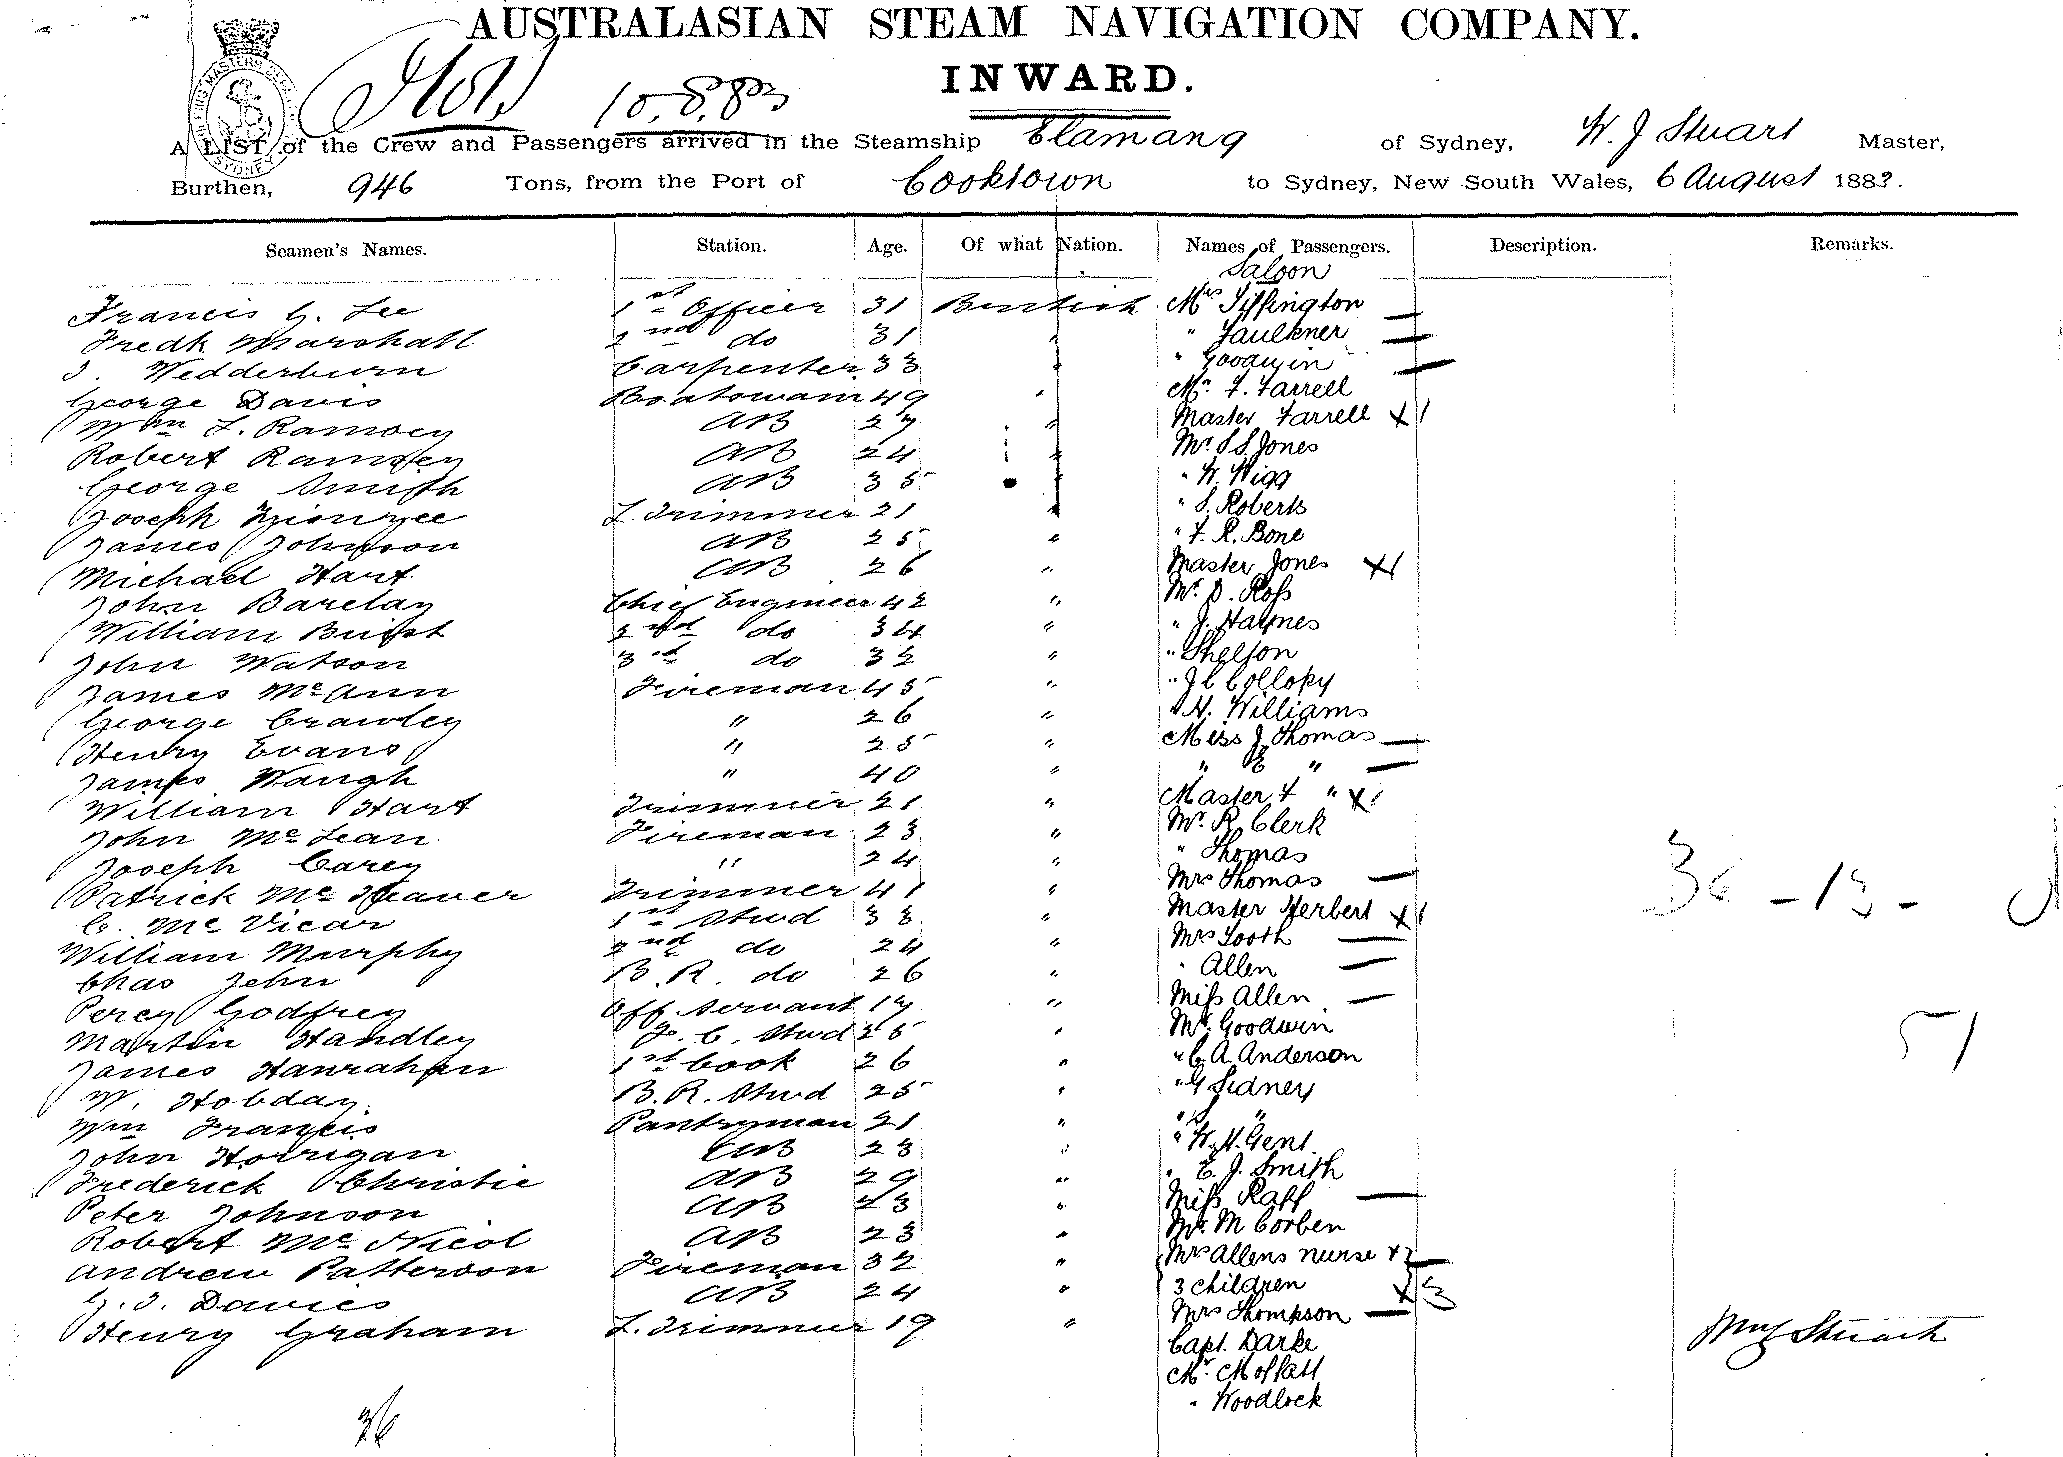 AUSTRALASIAN STEAM NAVIGATION COMPANY.
INWARD.
10.8.83
A LIST of the Crew and Passengers arrived in the Steamship Elamang of Sydney, W. J Stuart Master,
Burthen, 946 Tons, from the Port of Cooktown to Sydney, New South Wales, 6 August 1883.
Seamen's Names. Station. Age. Of what Nation. Names of Passengers. Description. Remarks.
Saloon
Francis G. Lee 1st Officer 31 British Mrs Tiffington
Fredk Marshall 2nd do 31 " " Faulkner
J. Wedderburn Carpenter 33 " " Goodwin
George Davis Boatswain 49 " Mr. F. Farrell
Wm L. Ramsey AB 27 " Master Farrell X1
Robert Ramsey AB 24 " Mr. S S Jones
George Smith AB 35 " " W. Wigg
Joseph L. Trimmer 21 " " S. Roberts
James Johnson AB 25 " " F. R. Bone
Michael Hart AB 26 " Master Jones X1
John Barclay Chief Engineer 42 " Mr. D. Ross
William Buist 2nd do 34 " " J. Haynes
John Watson 3rd do 32 " " Shelson
James McAnn Fireman 45 " " J C Collopy
George Crawley " 26 " " H. Williams
Henry Evans " 25 " Miss J. Thomas
James Waugh " 40 " " E "
William Hart Trimmer 21 " Master F " X1
John McLean Fireman 23 " Mr. R. Clerk
Joseph Carey " 24 " " Thomas
Patrick Mc Heaver Trimmer 41 " Mrs Thomas
C. McVicar 1st Stwd 38 " Master Herbert X1
36 - 13 -
William Murphy 2nd do 24 " Mrs Tooth
Chas John B. R. do 26 " " Allen
Percy Godfrey Off. Servant 17 " Miss Allen
Martin Handley F. C. Stwd 25 " Mr. Goodwin
51
James Hanrahan 1st Cook 26 " " C. A. Anderson
W. Hobday B. R. Stwd 25 " " G Sidney
Wm Francis Pantryman 21 " " S "
John Horrigan AB 23 " " W. H. Gent
Frederick Christie AB 29 " " E. J. Smith
Peter Johnson AB 23 " Miss Raff
Robert McNicol AB 23 " Mr. M Corben
Andrew Patterson Fireman 32 " Mrs Allens nurse +
G. J. Davies AB 24 " 3 children X 3
Henry Graham L. Trimmer 19 " Mrs Thompson
Capt. Darke
Wm J Stuart
Mr. Moffatt
" Woodlock
36